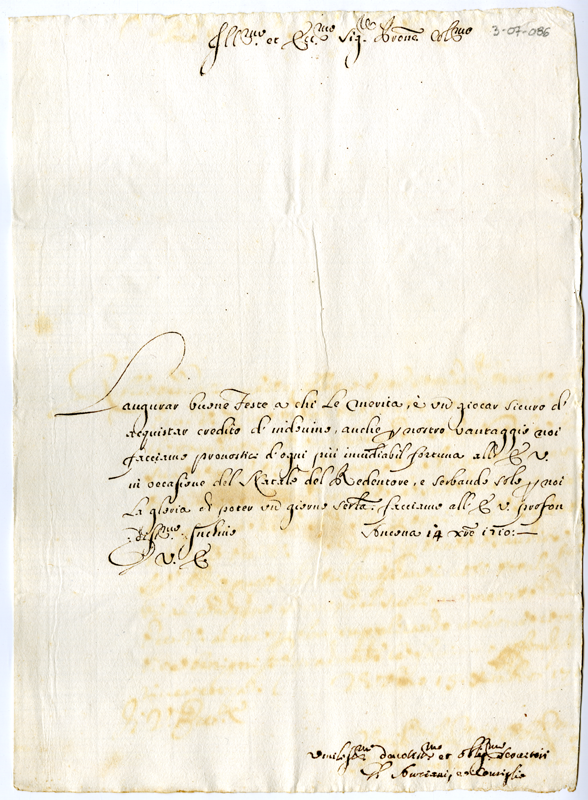 Ill.mo et Ecc.mo Sig.r Prone Col.mo
3-07-086
L'augurar buone Feste a chi le merita, è un giocar sicuro d'
acquistar credito d'indovino, anche p nostro vantaggio noi
facciamo pronostici d'ogni più invidiabil fortuna all' E. V.
in occasione del Natale del Redentore, e serbando solo p noi
la gloria di poter un giorno facciamo all' E. V. profon
diss.mo Inchino Ancona 14 Xre 1710:
D. V. E.
Umiliss.mi Devotiss.mi et Oblig.mi Servitori
Gl' Anziani, e Consiglio